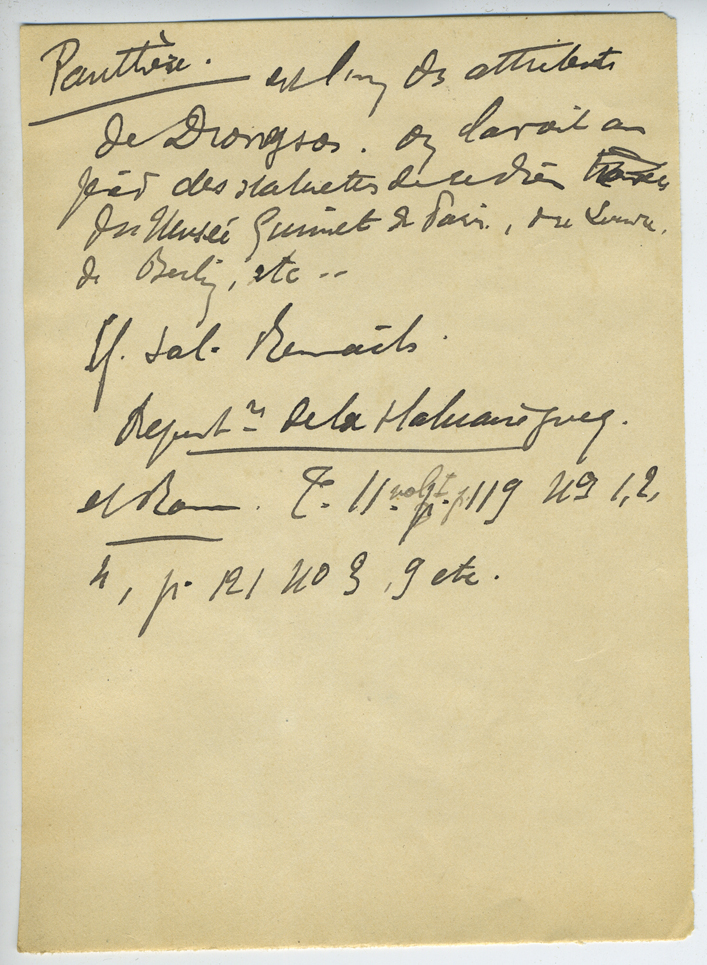 Panthère. est l'un des attributs
de Dionysos. on la voit au
pied des statuettes de ce dieu
du Musée Guimet de Paris, du Louvre,
de Berlin, etc --
Cf. Sal. Reinach.
Répert.re de la statuaire grecq.
et Rom. T. II. vol 1 p. 119 No 1, 2,
4, p. 121 No 3, 9 etc.